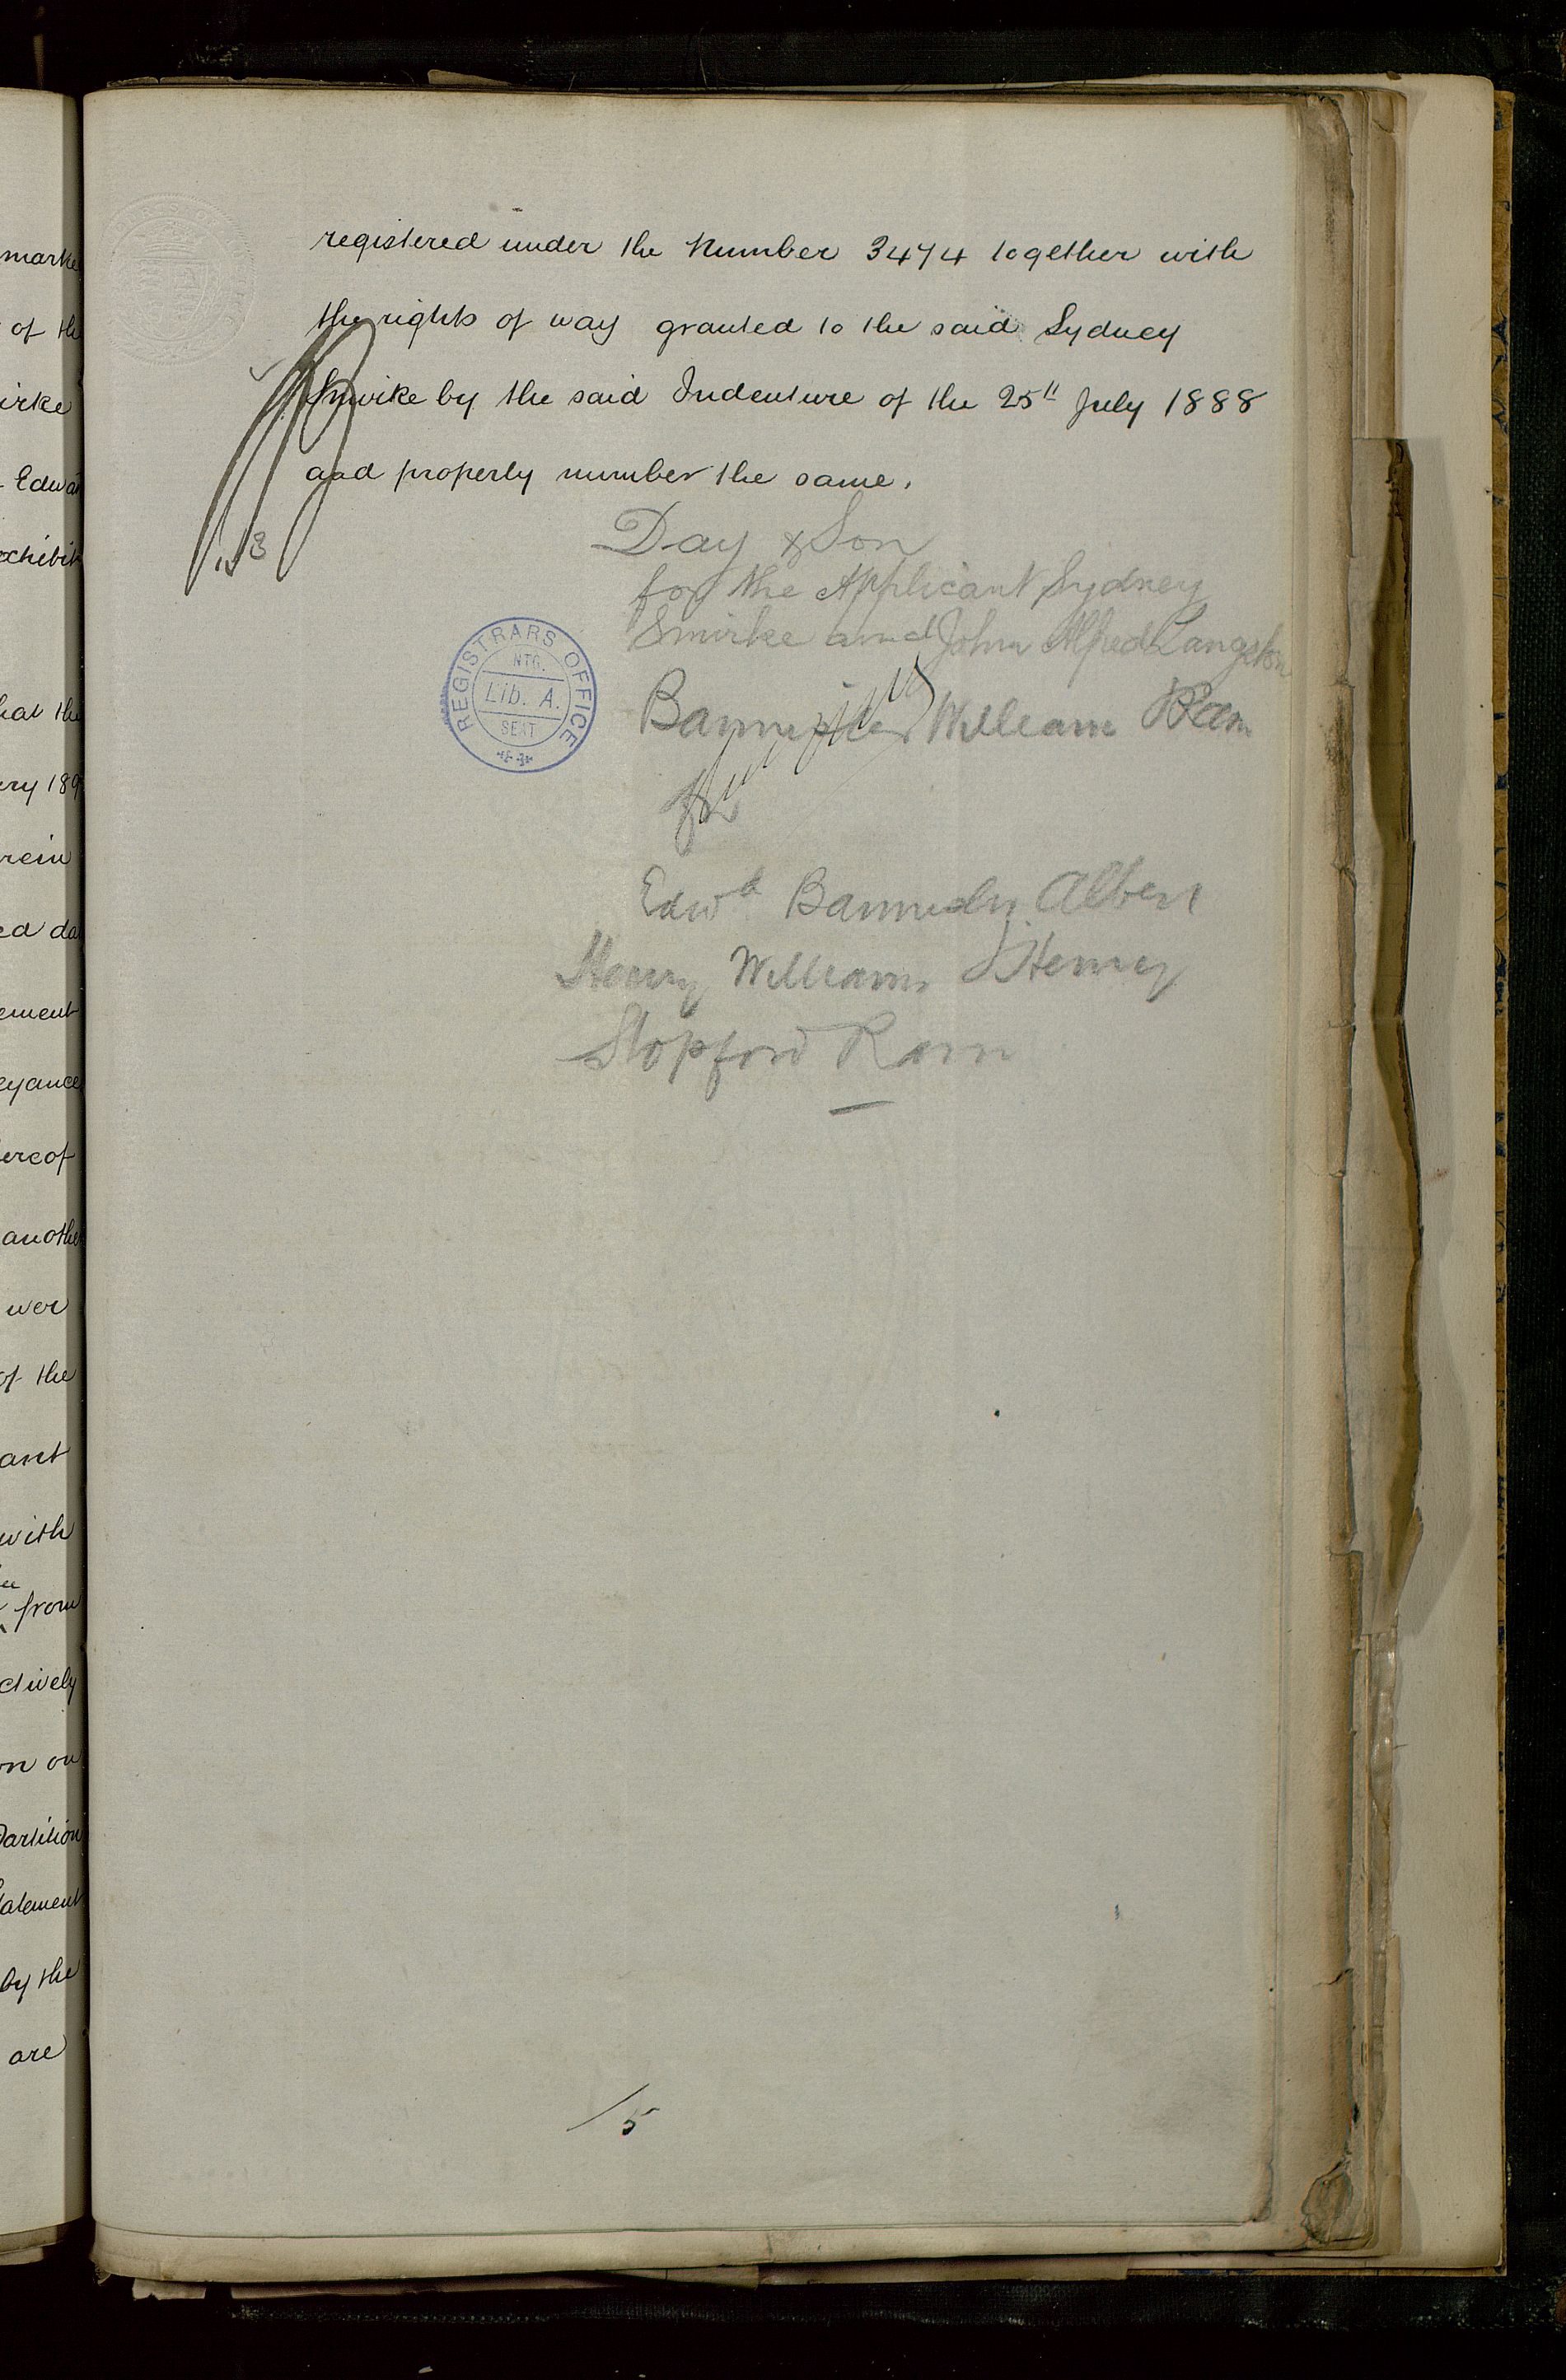 registered under the Number 3474 together with
the rights of way granted to the said Sydney
Smirke by the said Indenture of the 25th July 1888
and properly number the same.
Day & Son
for the Applicant Sydney
Smirke and John Alfred Langston
Bannister William Ram
for
Edwd Bannister Albert
Henry William Henry
Stopford Ram
REGISTRARS OFFICE
NTG.
Lib. A.
SEAT
/5
marke
of the
irke
Edwar
exhibit
hat the
ery 189
rein
ed da
ement
eyance
ereof
another
wer
of the
ant
with
from
ctively
on on
Partition
tatement
by the
are